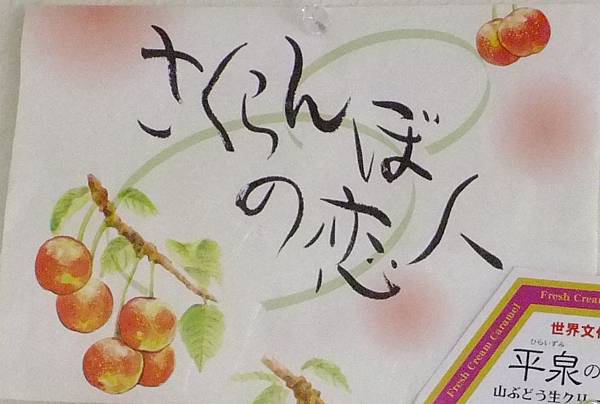 さくらんぼ
の恋人
Fresh Cream
Fresh Cream Caramel
世界文
ひらいずみ
平泉の
山ぶどう生クリー